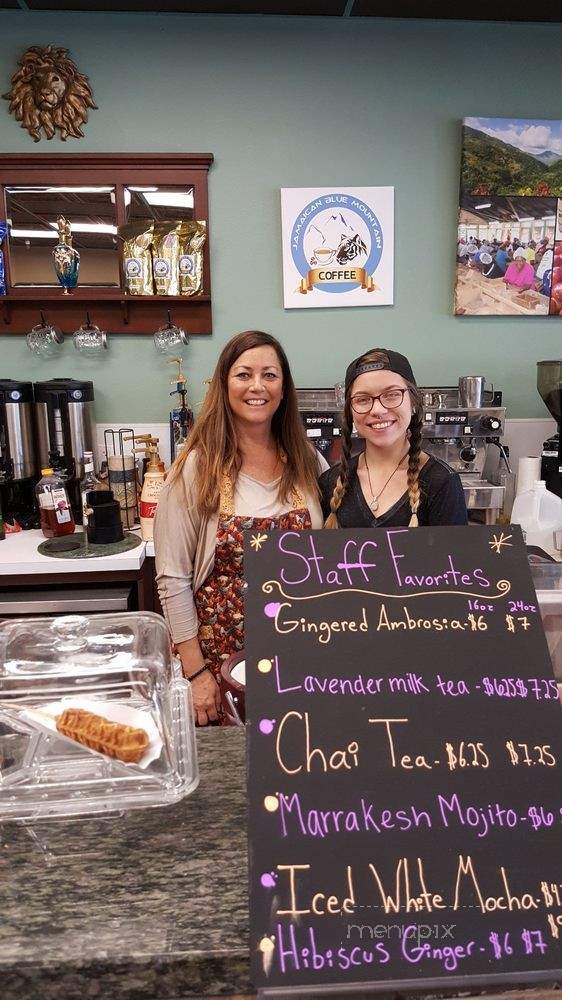 JAMAICAN BLUE MOUNTAIN
COFFEE
Staff Favorites
16oz 24oz
Gingered Ambrosia-$6 $7
Lavender milk tea-$6.25 $7.25
Chai Tea-$6.25 $7.25
Marrakesh Mojito-$6
Iced White Mocha-$4
menupix
Hibiscus Ginger-$6 $7